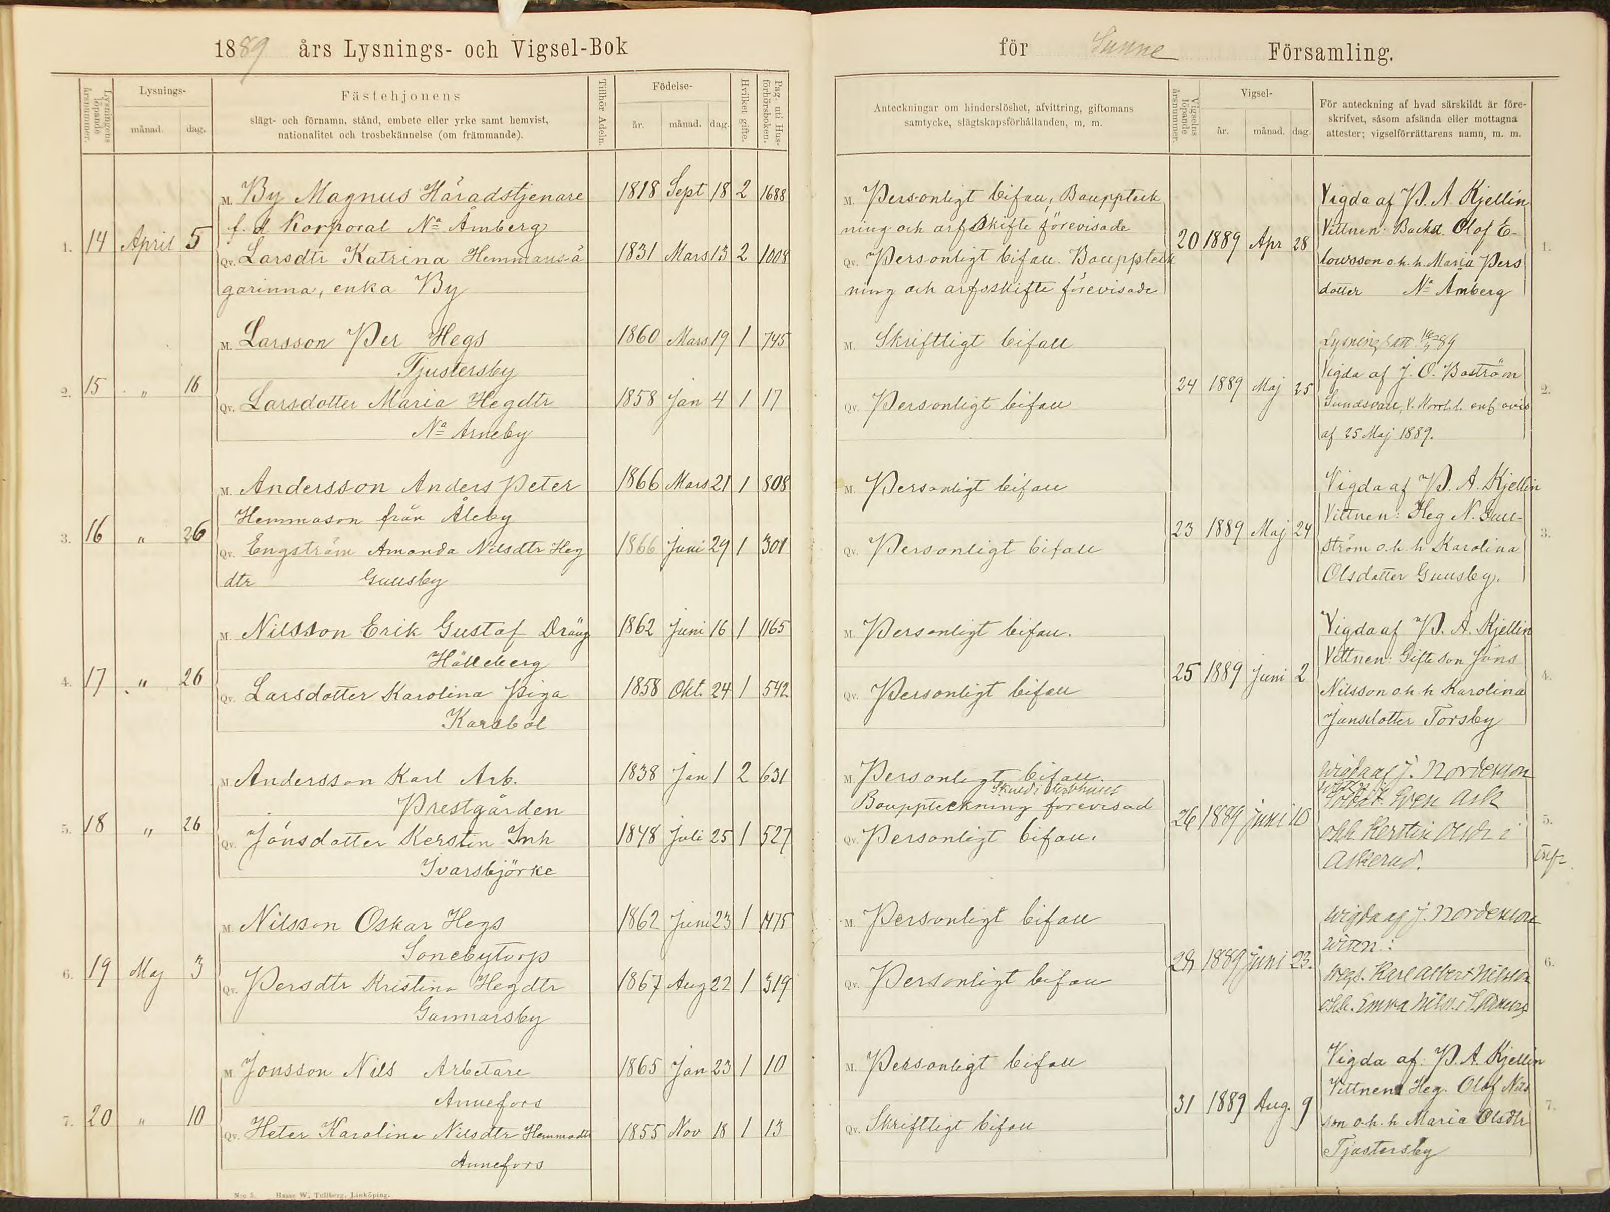 1889 års Lysnings- och Vigsel-Bok
Lysningens löpande årsnummer.
Lysnings-
månad.
dag.
Fästehjonens
slägt- och förnamn, stånd, embete eller yrke samt hemvist,
nationalitet och trosbekännelse (om främmande).
Tillhör Adeln.
Födelse-
år.
månad.
dag.
Hvilket gifte.
Pag. uti Husförhörsboken.
M. By Magnus Häradstjenare 1818 Sept 18 2 1688
f. d. Korporal Na Åmberg
1. 14 April 5
Qv. Larsdtr Katrina Hemmansä 1831 Mars 13 2 1008
garinna, enka By
M. Larsson Per Hegs 1860 Mars 19 1 745
Tjustersby
2. 15 " 16
Qv. Larsdotter Maria Hegdtr 1858 Jan 4 1 17
Na Arneby
M. Andersson Anders Peter 1866 Mars 21 1 808
Hemmason från Åleby
3. 16 " 26
Qv. Engström Amanda Nilsdtr Heg 1866 Juni 29 1 301
dtr Gunsby
M. Nilsson Erik Gustaf Dräng 1862 Juni 16 1 1165
Hälleberg
4. 17 " 26
Qv. Larsdotter Karolina Piga 1858 Okt. 24 1 542
Karsbol
M. Andersson Karl Arb. 1838 Jan 1 2 631
Prestgården
5. 18 " 26
Qv. Jonsdotter Kerstin Inh 1848 Juli 25 1 527
Ivarsbjörke
M. Nilsson Oskar Hegs 1862 Juni 23 1
Sonebytorp
6. 19 Maj 3
Qv. Persdtr Kristina Hegdtr 1867 Aug 22 1 319
Gunnarsby
M. Jonsson Nils Arbetare 1865 Jan 23 1 10
Annefors
7. 20 " 10
Qv. Heter Karolina Nilsdtr Hemmadtr 1855 Nov 18 1 13
Annefors
N:o 5. Hasse W. Tullberg, Linköping.
för Sunne Församling.
Anteckningar om hinderslöshet, afvittring, giftomans
samtycke, slägtskapsförhållanden, m. m.
Vigselns löpande årsnummer.
Vigsel-
år.
månad.
dag
För anteckning af hvad särskildt är före-
skrifvet, såsom afsända eller mottagna
attester; vigselförrättarens namn, m. m.
M. Personligt bifall, Boupptek Vigda af P. A. Kjellin
ning och arfskifte förevisade Vittnen: Backst. Olof E-
20 1889 Apr 28 1.
Qv. Personligt bifall. Boupptek lowsson o.h.h. Maria Pers
ning och arfsskifte förevisade dotter Na Åmberg
M. Skriftligt bifall
24 1889 Maj 25 Vigda af J. O. Boström 2.
Qv. Personligt bifall Sundsvall, V. Norrl. l. enl. avis
af 25 Maj 1889.
M. Personligt bifall Vigda af P. A. Kjellin
Vittnen: Heg N. Gull-
23 1889 Maj 24 3.
Qv. Personligt bifall ström o.h.h Karolina
Olsdotter Gunsby.
M. Personligt bifall. Vigda af P. A. Kjellin
Vittnen: Gifte son Jöns
25 1889 Juni 2 4.
Qv. Personligt bifall Nilsson o h h Karolina
Jansdotter Torsby
M. Personligt bifall. wigda af J. Nordenson
Bouppteckning förevisad Sven Ask
26 1889 juni 10 5.
Qv. Personligt bifall. ohh Kerstin Olsdr i
Askerud.
M. Personligt bifall wigda af J. Nordenson
28 1889 juni 23. 6.
Qv. Personligt bifall Hegs. Karl Albert Nilsson
M. Personligt bifall Vigda af P. A. Kjellin
Vittnen Heg. Olof Nils
31 1889 Aug. 9 7.
Qv. Skriftligt bifall son o.h.h Maria Olsdtr
Tjustersby